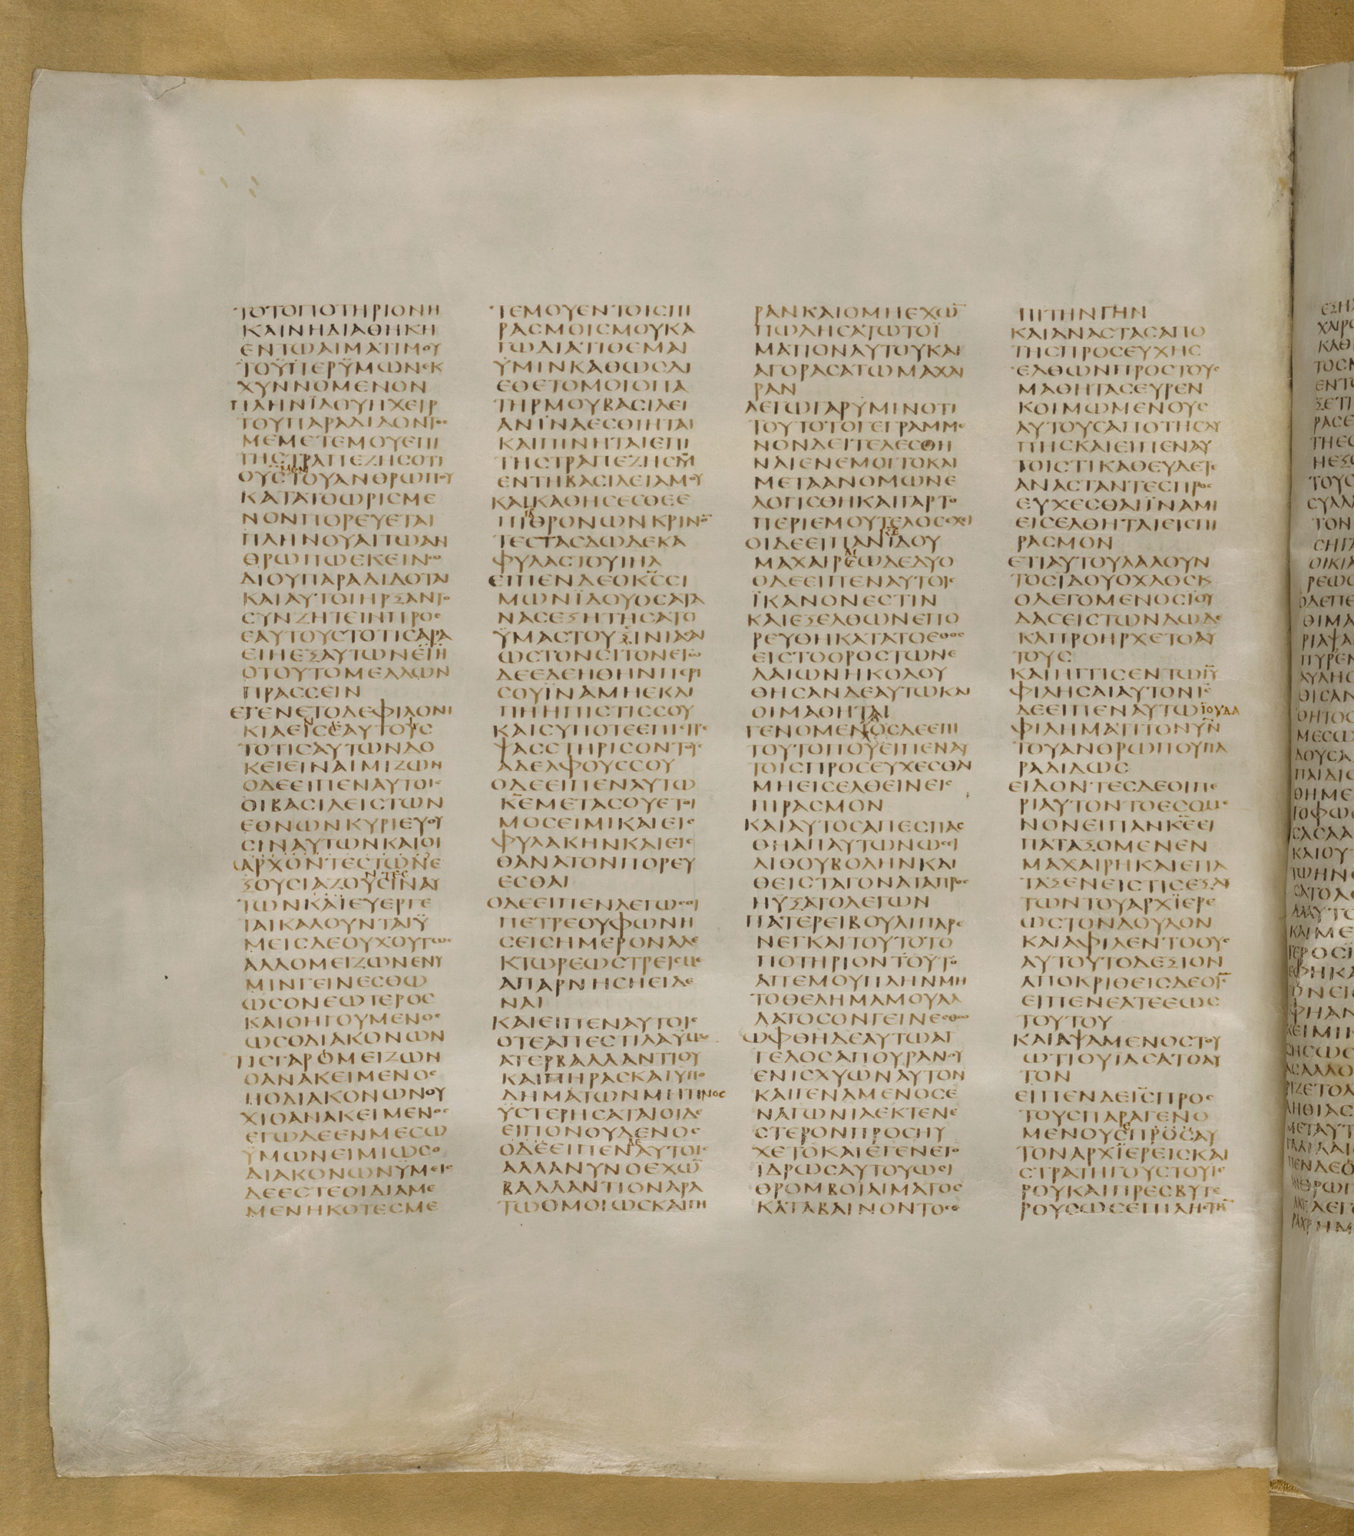 ΤΟΤΟΠΟΤΗΡΙΟΝΗ
ΚΑΙΝΗΔΙΑΘΗΚΗ
ΕΝΤΩΑΙΜΑΤΙΜΟΥ
ΤΟΫΠΕΡΫΜΩΝΕΚ
ΧΥΝΝΟΜΕΝΟΝ
ΠΛΗΝΪΔΟΥΗΧΕΙΡ
ΤΟΥΠΑΡΑΔΙΔΟΝΤΟϹ
ΜΕΜΕΤΕΜΟΥΕΠΙ
ΤΗϹΤΡΑΠΕΖΗϹΟΤΙ
ΟΥΣΤΟΥΑΝΘΡΩΠΟΥ
ΚΑΤΑΤΟΩΡΙϹΜΕ
ΝΟΝΠΟΡΕΥΕΤΑΙ
ΠΛΗΝΟΥΑΙΤΩΑΝ
ΘΡΩΠΩΕΚΕΙΝΩ
ΔΙΟΥΠΑΡΑΔΙΔΟΤΑΙ
ΚΑΙΑΥΤΟΙΗΡΞΑΝΤΟ
ϹΥΝΖΗΤΕΙΝΠΡΟϹ
ΕΑΥΤΟΥϹΤΟΤΙϹΑΡΑ
ΕΙΗΕΞΑΥΤΩΝΕΠΙ
ΟΤΟΥΤΟΜΕΛΛΩΝ
ΠΡΑϹϹΕΙΝ
ΕΓΕΝΕΤΟΔΕΦΙΛΟΝΙ
ΚΙΑΕΙϹΕΑΥΤΟΥϹ
ΤΟΤΙϹΑΥΤΩΝΔΟ
ΚΕΙΕΙΝΑΙΜΙΖΩΝ
ΟΔΕΕΙΠΕΝΑΥΤΟΙϹ
ΟΙΒΑϹΙΛΕΙϹΤΩΝ
ΕΘΝΩΝΚΥΡΙΕΥΟΥ
ϹΙΝΑΥΤΩΝΚΑΙΟΙ
ΑΡΧΟΝΤΕϹΤΩΝΕ
ΞΟΥϹΙΑΖΟΥϹΙΝΑΥ
ΤΩΝΚΑΙΕΥΕΡΓΕ
ΤΑΙΚΑΛΟΥΝΤΑΙΫ
ΜΕΙϹΔΕΟΥΧΟΥΤΩϹ
ΑΛΛΟΜΕΙΖΩΝΕΝΥ
ΜΙΝΓΕΙΝΕϹΘΩ
ΩϹΟΝΕΩΤΕΡΟϹ
ΚΑΙΟΗΓΟΥΜΕΝΟϹ
ΩϹΟΔΙΑΚΟΝΩΝ
ΤΙϹΓΑΡΟΜΕΙΖΩΝ
ΟΑΝΑΚΕΙΜΕΝΟϹ
ΗΟΔΙΑΚΟΝΩΝΟΥ
ΧΙΟΑΝΑΚΕΙΜΕΝΟϹ
ΕΓΩΔΕΕΝΜΕϹΩ
ΫΜΩΝΕΙΜΙΩϹΟ
ΔΙΑΚΟΝΩΝΥΜΕΙϹ
ΔΕΕϹΤΕΟΙΔΙΑΜΕ
ΜΕΝΗΚΟΤΕϹΜΕ
ΤΕΜΟΥΕΝΤΟΙϹΠΙ
ΡΑϹΜΟΙϹΜΟΥΚΑ
ΓΩΔΙΑΤΙΘΕΜΑΙ
ΫΜΙΝΚΑΘΩϹΔΙ
ΕΘΕΤΟΜΟΙΟΠΑ
ΤΗΡΜΟΥΒΑϹΙΛΕΙ
ΑΝΙΝΑΕϹΘΙΗΤΑΙ
ΚΑΙΠΙΝΗΤΑΙΕΠΙ
ΤΗϹΤΡΑΠΕΖΗϹΜ
ΕΝΤΗΒΑϹΙΛΕΙΑΜΟΥ
ΚΑΙΚΑΘΗϹΕϹΘΕΕ
ΠΙΘΡΟΝΩΝΚΡΙΝΟ
ΤΕϹΤΑϹΔΩΔΕΚΑ
ΦΥΛΑϹΤΟΥΙΗΛ
ΕΙΠΕΝΔΕΟΚϹϹΙ
ΜΩΝΪΔΟΥΟϹΑΤΑ
ΝΑϹΕΞΗΤΗϹΑΤΟ
ΫΜΑϹΤΟΥϹΙΝΙΑϹΑΙ
ΩϹΤΟΝϹΙΤΟΝΕΓΩ
ΔΕΕΔΕΗΘΗΝΠΕΡΙ
ϹΟΥΪΝΑΜΗΕΚΛΙ
ΠΗΗΠΙϹΤΙϹϹΟΥ
ΚΑΙϹΥΠΟΤΕΕΠΙϹΤΡΕ
ΨΑϹϹΤΗΡΙϹΟΝΤΟΥϹ
ΑΔΕΛΦΟΥϹϹΟΥ
ΟΔΕΕΙΠΕΝΑΥΤΩ
ΚΕΜΕΤΑϹΟΥΕΤΟΙ
ΜΟϹΕΙΜΙΚΑΙΕΙϹ
ΦΥΛΑΚΗΝΚΑΙΕΙϹ
ΘΑΝΑΤΟΝΠΟΡΕΥ
ΕϹΘΑΙ
ΟΔΕΕΙΠΕΝΛΕΓΩϹΟΙ
ΠΕΤΡΕΟΥΦΩΝΗ
ϹΕΙϹΗΜΕΡΟΝΑΛΕ
ΚΤΩΡΕΩϹΤΡΕΙϹΜΕ
ΑΠΑΡΝΗϹΗΕΙΔΕ
ΝΑΙ
ΚΑΙΕΙΠΕΝΑΥΤΟΙϹ
ΟΤΕΑΠΕϹΤΙΛΑΫΜΑϹ
ΑΤΕΡΒΑΛΛΑΝΤΙΟΥ
ΚΑΙΠΗΡΑϹΚΑΙΥΠΟ
ΔΗΜΑΤΩΝΜΗΤΙΝΟϹ
ΥϹΤΕΡΗϹΑΤΑΙΟΙΔΕ
ΕΙΠΟΝΟΥΔΕΝΟϹ
ΟΔΕΕΙΠΕΝΑΥΤΟΙϹ
ΑΛΛΑΝΥΝΟΕΧΩ
ΒΑΛΛΑΝΤΙΟΝΑΡΑ
ΤΩΟΜΟΙΩϹΚΑΙΠΗ
ΡΑΝΚΑΙΟΜΗΕΧΩ
ΠΩΛΗϹΑΤΩΤΟΪ
ΜΑΤΙΟΝΑΥΤΟΥΚΑΙ
ΑΓΟΡΑϹΑΤΩΜΑΧΑΙ
ΡΑΝ
ΛΕΓΩΓΑΡΥΜΙΝΟΤΙ
ΤΟΥΤΟΤΟΓΕΓΡΑΜΜΕ
ΝΟΝΔΕΙΤΕΛΕϹΘΗ
ΝΑΙΕΝΕΜΟΙΤΟΚΑΙ
ΜΕΤΑΑΝΟΜΩΝΕ
ΛΟΓΙϹΘΗΚΑΙΓΑΡΤΟ
ΠΕΡΙΕΜΟΥΤΕΛΟϹΕΧΕΙ
ΟΙΔΕΕΙΠΑΝΪΔΟΥ
ΜΑΧΑΙΡΕΩΔΕΔΥΟ
ΟΔΕΕΙΠΕΝΑΥΤΟΙϹ
ΪΚΑΝΟΝΕϹΤΙΝ
ΚΑΙΕΞΕΛΘΩΝΕΠΟ
ΡΕΥΘΗΚΑΤΑΤΟΕΘΟϹ
ΕΙϹΤΟΟΡΟϹΤΩΝΕ
ΛΑΙΩΝΗΚΟΛΟΥ
ΘΗϹΑΝΔΕΑΥΤΩΚΑΙ
ΟΙΜΑΘΗΤΑΙ
ΓΕΝΟΜΕΝΟϹΔΕΕΠΙ
ΤΟΥΤΟΠΟΥΕΙΠΕΝΑΥ
ΤΟΙϹΠΡΟϹΕΥΧΕϹΘΑΙ
ΜΗΕΙϹΕΛΘΕΙΝΕΙϹ
ΠΙΡΑϹΜΟΝ
ΚΑΙΑΥΤΟϹΑΠΕϹΠΑϹ
ΘΗΑΠΑΥΤΩΝΩϹΙ
ΛΙΘΟΥΒΟΛΗΝΚΑΙ
ΘΕΙϹΤΑΓΟΝΑΤΑΠΡΟϹ
ΗΥΞΑΤΟΛΕΓΩΝ
ΠΑΤΕΡΕΙΒΟΥΛΙΠΑΡΕ
ΝΕΓΚΑΙΤΟΥΤΟΤΟ
ΠΟΤΗΡΙΟΝΤΟΥΤΟ
ΑΠΕΜΟΥΠΛΗΝΜΗ
ΤΟΘΕΛΗΜΑΜΟΥΑΛ
ΛΑΤΟϹΟΝΓΕΙΝΕϹΘΩ
ΩΦΘΗΔΕΑΥΤΩΑΓ
ΓΕΛΟϹΑΠΟΥΡΑΝΟΥ
ΕΝΙϹΧΥΩΝΑΥΤΟΝ
ΚΑΙΓΕΝΑΜΕΝΟϹΕ
ΝΑΓΩΝΙΑΕΚΤΕΝΕ
ϹΤΕΡΟΝΠΡΟϹΗΥ
ΧΕΤΟΚΑΙΕΓΕΝΕΤΟ
ΪΔΡΩϹΑΥΤΟΥΩϹΙ
ΘΡΟΜΒΟΙΑΙΜΑΤΟϹ
ΚΑΤΑΒΑΙΝΟΝΤΟϹ
ΠΙΤΗΝΓΗΝ
ΚΑΙΑΝΑϹΤΑϹΑΠΟ
ΤΗϹΠΡΟϹΕΥΧΗϹ
ΕΛΘΩΝΠΡΟϹΤΟΥϹ
ΜΑΘΗΤΑϹΕΥΡΕΝ
ΚΟΙΜΩΜΕΝΟΥϹ
ΑΥΤΟΥϹΑΠΟΤΗϹΛΥ
ΠΗϹΚΑΙΕΙΠΕΝΑΥ
ΤΟΙϹΤΙΚΑΘΕΥΔΕΤΕ
ΑΝΑϹΤΑΝΤΕϹΠΡΟϹ
ΕΥΧΕϹΘΑΙΪΝΑΜΗ
ΕΙϹΕΛΘΗΤΑΙΕΙϹΠΙ
ΡΑϹΜΟΝ
ΕΤΙΑΥΤΟΥΛΑΛΟΥΝ
ΤΟϹΙΔΟΥΟΧΛΟϹΚΑΙ
ΟΛΕΓΟΜΕΝΟϹΙΟΥ
ΔΑϹΕΙϹΤΩΝΔΩΔΕ
ΚΑΙΠΡΟΗΡΧΕΤΟΑΥ
ΤΟΥϹ
ΚΑΙΗΓΓΙϹΕΝΤΩΙΥ
ΦΙΛΗϹΑΙΑΥΤΟΝΙϹ
ΔΕΕΙΠΕΝΑΥΤΩΪΟΥΔΑ
ΦΙΛΗΜΑΤΙΤΟΝΥΝ
ΤΟΥΑΝΘΡΩΠΟΥΠΑ
ΡΑΔΙΔΩϹ
ΕΙΔΟΝΤΕϹΔΕΟΙΠΕ
ΡΙΑΥΤΟΝΤΟΕϹΟΜΕ
ΝΟΝΕΙΠΑΝΚΕΕΙ
ΠΑΤΑΞΟΜΕΝΕΝ
ΜΑΧΑΙΡΗΚΑΙΕΠΑ
ΤΑΞΕΝΕΙϹΤΙϹΕΞΑΥ
ΤΩΝΤΟΥΑΡΧΪΕΡΕ
ΩϹΤΟΝΔΟΥΛΟΝ
ΚΑΙΑΦΙΛΕΝΤΟΟΥϹ
ΑΥΤΟΥΤΟΔΕΞΙΟΝ
ΑΠΟΚΡΙΘΕΙϹΔΕΟΙϹ
ΕΙΠΕΝΕΑΤΕΕΩϹ
ΤΟΥΤΟΥ
ΚΑΙΑΨΑΜΕΝΟϹΤΟΥ
ΩΤΙΟΥΪΑϹΑΤΟΑΥ
ΤΟΝ
ΕΙΠΕΝΔΕΙϹΠΡΟϹ
ΤΟΥϹΠΑΡΑΓΕΝΟ
ΜΕΝΟΥϹΠΡΟϹΑΥ
ΤΟΝΑΡΧΪΕΡΕΙϹΚΑΙ
ϹΤΡΑΤΗΓΟΥϹΤΟΥΙΕ
ΡΟΥΚΑΙΠΡΕϹΒΥΤΕ
ΡΟΥϹΩϹΕΠΙΛΗϹΤΗ